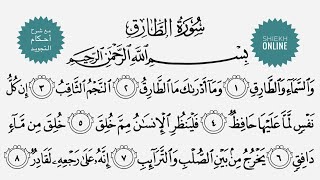 سُورَةُ الطَّارِقِ
مع شرح
أحكام
التجويد
SHIEKH
ONLINE
بِسْمِ اللَّهِ الرَّحْمَٰنِ الرَّحِيمِ
وَالسَّمَاءِ وَالطَّارِقِ ١ وَمَا أَدْرَىٰكَ مَا الطَّارِقُ ٢ النَّجْمُ الثَّاقِبُ ٣ إِن كُلُّ
نَفْسٍ لَّمَّا عَلَيْهَا حَافِظٌ ٤ فَلْيَنظُرِ الْإِنسَانُ مِمَّ خُلِقَ ٥ خُلِقَ مِن مَّاءٍ
دَافِقٍ ٦ يَخْرُجُ مِن بَيْنِ الصُّلْبِ وَالتَّرَائِبِ ٧ إِنَّهُ عَلَىٰ رَجْعِهِ لَقَادِرٌ ٨